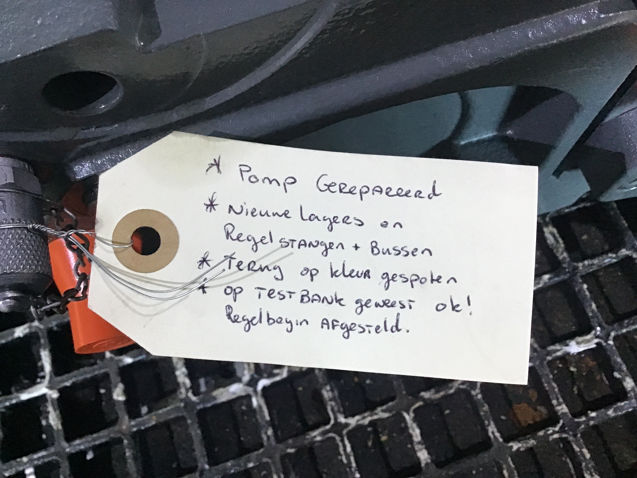 * Pomp Gerepareerd
* Nieuwe Lagers en
Regelstangen + Bussen
* Terug op kleur gespoten
* op TESTBANK geweest ok!
Regelbegin Afgesteld.